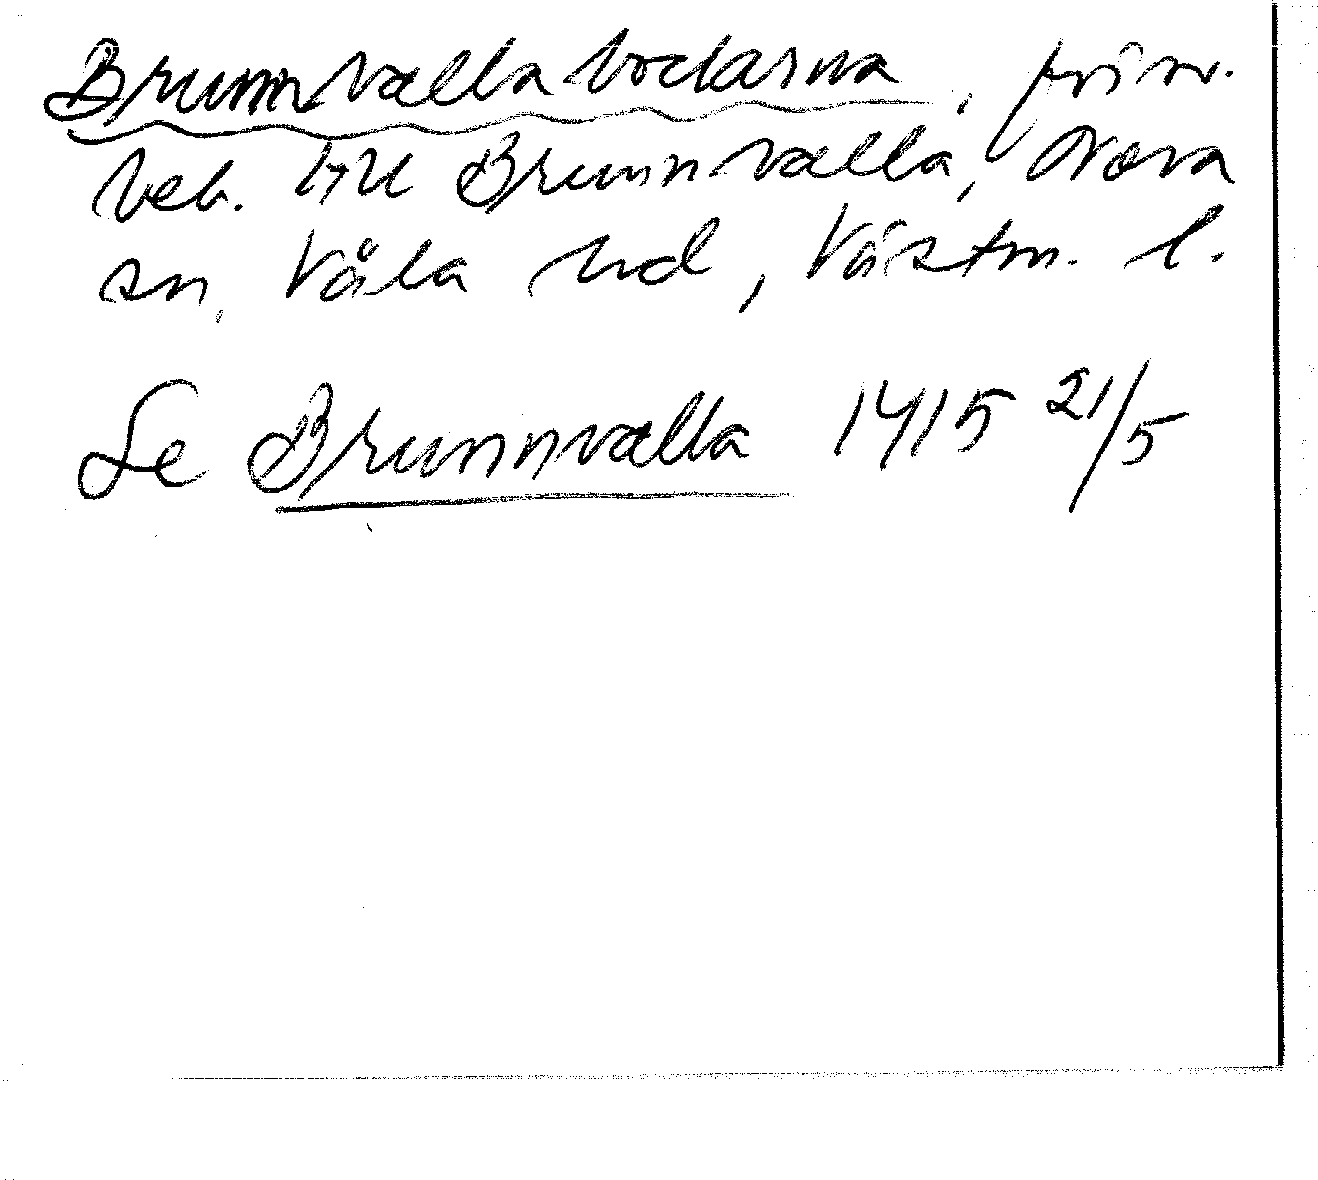 Brunnvallabodarna, försv.
beb. till Brunnvalla, Nora
sn, Våla hd, Västm. l.
Se Brunnvalla 1415 21/5